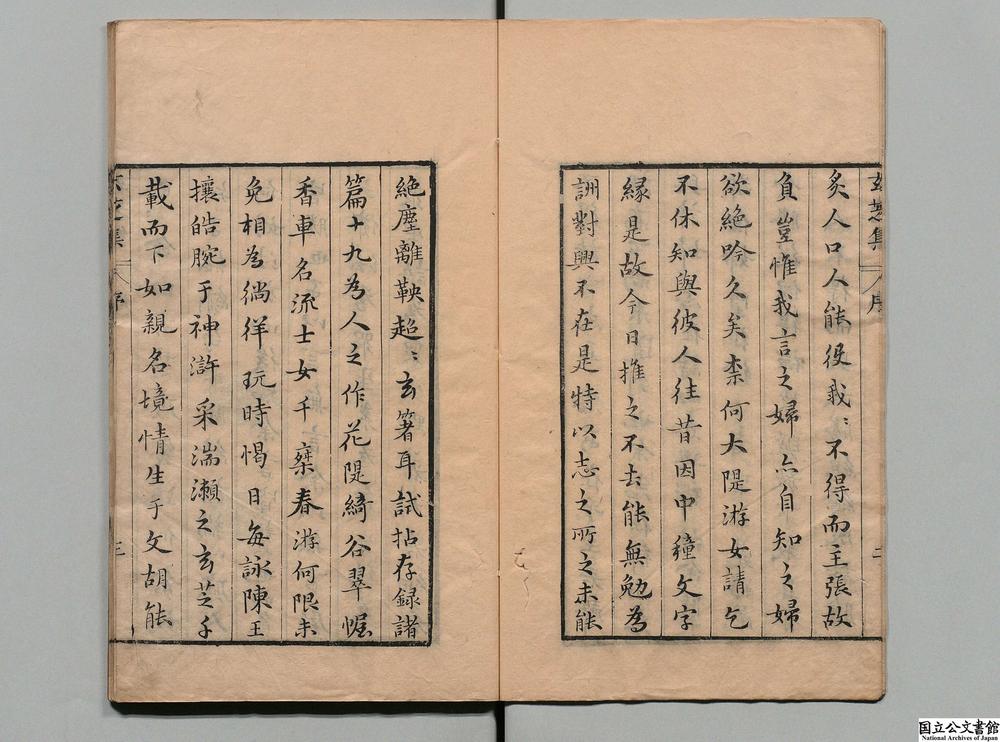 玄芝集 序 二
炙人口人能役我〻不得而主張故
負豈惟我言之婦亦自知之婦
欲絶吟久矣柰何大隄游女請乞
不休知與彼人往昔因中種文字
緣是故今日推之不去能無勉為
詶對興不在是特以志之所之未能
絶塵離鞅超〻玄箸耳試拈存録諸
篇十九為人之作花隄綺谷翠幄
香車名流士女千橤春游何限未
免相為徜徉玩時愒日每詠陳王
攘皓腕于神滸采湍瀬之玄芝千
載而下如親名境情生于文胡能
玄芝集 序 三
国立公文書館
National Archives of Japan